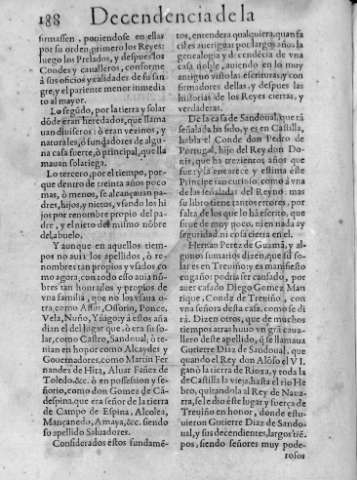 188 Decendencia de la
firmassen, poniendose en ellas
por su orden, primero los Reyes:
luego los Prelados, y despues los
Condes y caualleros, conforme
à sus oficios y calidades de su san
gre, y el pariente menor inmedia
to al mayor.
Lo segũdo, por la tierra y solar
dõde eran heredados, que llama
uan diuiseros: ò eran vezinos, y
naturales, ò fundadores de algu-
na casa fuerte, ò principal, que lla
mauan solariega.
Lo tercero, por el tiempo, por-
que dentro de treinta años poco
mas, ò menos, se alcançauan pa-
dres, hijos, y nietos, vsando los hi
jos por renombre propio del pa-
dre, y el nieto del mismo nõbre
del abuelo.
Y aunque en aquellos tiem-
pos no auia los apellidos, ò re-
nombres tan propios y vsados co
mo agora, con todo esso auia nõ-
bres tan honrados y propios de
vna familia, que no los vsaua o-
tra, como Assur, Ossorio, Ponce,
Vela, Nuño, Yñigo y à estos aña
dian el del lugar que ò era su so-
lar, como Castro, Sandoual, ò te-
nian en honor como Alcaydes y
Gouernadores, como Martin Fer
nandez de Hita, Aluar Fañez de
Toledo, &c. ò en possession y se-
ñorio, como don Gomez de Cã-
despina, que era señor de la tierra
de Campo de Espina, Alcolea,
Mançanedo, Amaya, &c. siendo
so apellido Saluadores.
Considerados estos fundamẽ-
tos, entendera qualquiera, quan fa
ciles aueriguar por largos años la
genealogia y decẽdẽcia de vna
casa noble, auiendo en lo muy
antiguo visto las escrituras, y con
firmadores dellas, y despues las
historias de los Reyes ciertas, y
verdaderas.
De la casa de Sandoual, que tã
señalada ha sido, y es en Castilla,
habla el Conde don Pedro de
Portugal, hijo del Rey don Do-
nis, que ha trezientos años que
fue: y la enrarece y estima este
Principe tan curioso, como à vna
de las señaladas del Reyno: mas
su libro tiene tantos errores, por
falta de los que lo hã escrito, que
firue de muy poco, ni en nada ay
seguridad ni cosa cierta en el.
Hernan Perez de Guzmã, y al-
gunos sumarios dizen, que su so-
lar es en Treuiño: y es manifiesto
engaño: podria ser causado, por
auer casado Diego Gomez Man
rique, Conde de Treuiño, con
vna señora desta casa, como se di
rà. Dizen otros, que de muchos
tiempos atras huuo vn grã caua-
llero deste apellido, q̃ se llamaua
Gutierre Diaz de Sandoual, que
quando el Rey don Alõso el VI.
ganò la tierra de Rioxa, y toda la
de Castilla la vieja hasta el rio He
bro, quitandola al Rey de Naua-
rra, se le dio este lugar y fuerça de
Treuiño en honor, donde estu-
uieron Gutierre Diaz de Sando-
ual, y sus decendientes, largos tiẽ-
pos, siendo señores muy pode-
rosos